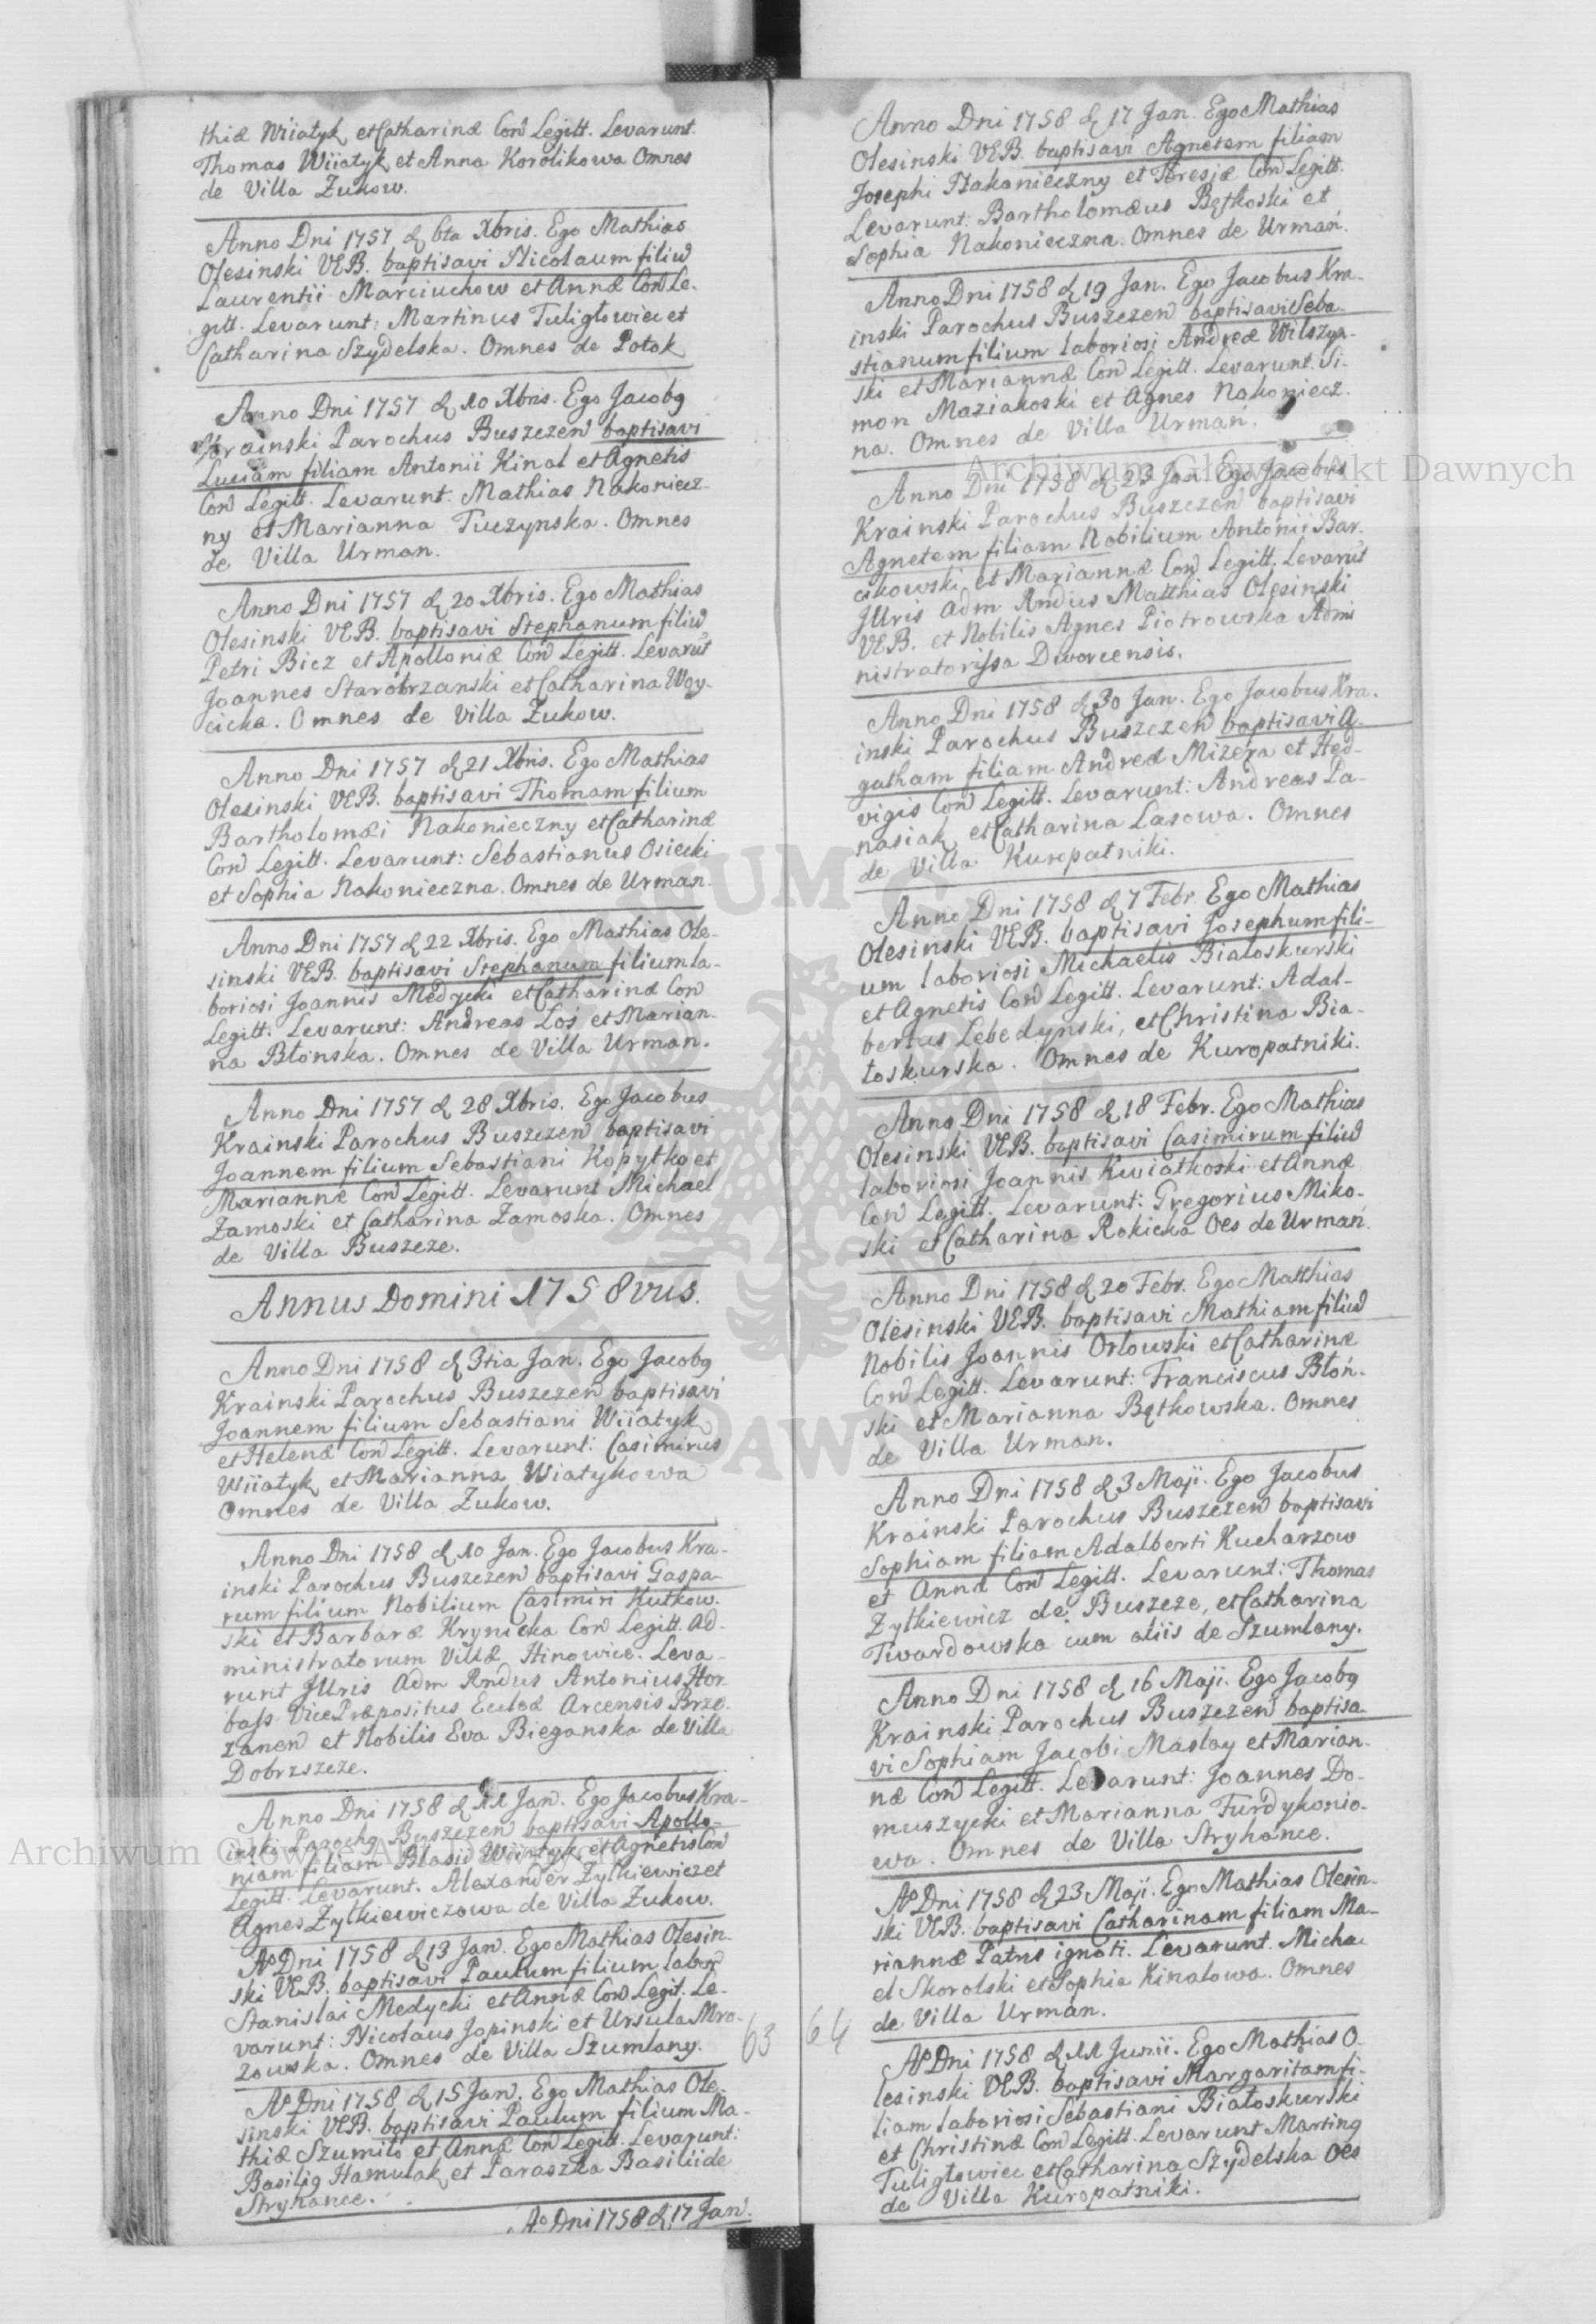 thiæ Wiiatyk et Catharinæ Con Legitt. Levarunt.
Thomas Wiiatyk et Anna Korolikowa Omnes
de Villa Zukow.
Anno Dni 1757 d 6ta Xbris. Ego Mathias
Olesinski VEB. baptisavi Nicolaum filiu
Laurentii Marciuchow et Annæ Con Le-
gitt. Levarunt: Martinus Tuligłowiec et
Catharina Szydelska. Omnes de Potok
Anno Dni 1757 d 10 Xbris. Ego Jacobg
Krainski Parochus Buszczen baptisavi
Luciam filiam Antonii Kinal et Agnetis
Con Legitt. Levarunt: Mathias Nakoniecz-
ny et Marianna Tuczynska. Omnes
de Villa Urman.
Anno Dni 1757 d 20 Xbris. Ego Mathias
Olesinski VEB. baptisavi Stephanum filiu
Petri Bicz et Apolloniæ Con Legitt. Levarut
Joannes Starobrzanski et Catharina Woy-
cicka. Omnes de Villa Zukow.
Anno Dni 1757 d 21 Xbris. Ego Mathias
Olesinski VEB. baptisavi Thomam filium
Bartholomæi Nakonieczny et Catharinæ
Con Legitt. Levarunt: Sebastianus Osiecki
et Sophia Nakonieczna. Omnes de Urman.
Anno Dni 1757 d 22 Xbris. Ego Mathias Ole-
sinski VEB. baptisavi Stephanum filium la-
boriosi Joannis Medycki et Catharinæ Con
Legitt. Levarunt: Andreas Łoś et Marian-
na Błonska. Omnes de Villa Urman.
Anno Dni 1757 d 28 Xbris. Ego Jacobus
Krainski Parochus Buszczen baptisavi
Joannem filium Sebastiani Kopytko et
Mariannæ Con Legitt. Levarunt Michael
Zamoski et Catharina Zamoska. Omnes
de Villa Buszcze.
Annus Domini 1758vus.
Anno Dni 1758 d 3tia Jan. Ego Jacobg
Krainski Parochus Buszczen baptisavi
Joannem filium Sebastiani Wiiatyk
et Helenæ Con Legitt. Levarunt: Casimirus
Wiiatyk et Marianna Wiatykowa
Omnes de Villa Zukow.
Anno Dni 1758 d 10 Jan. Ego Jacobus Kra-
inski Parochus Buszczen baptisavi Gaspa-
rum filium Nobilium Casimiri Kutkow-
ski et Barbaræ Krynicka Con Legitt. Ad-
ministratorum Villæ Hinowice. Leva-
runt Jllris Adm Rndus Antonius Hor-
bass Vice Præpositus Ecclæ Arcensis Brze-
zanen et Nobilis Eva Bieganska de Villa
Dobrzszcze.
Anno Dni 1758 d 11 Jan. Ego Jacobus Kra-
inski Parochg Buszczen baptisavi Apollo-
niam filiam Blasii Wiiatyk et Agnetis Con
Legitt. Levarunt. Alexander Zylkiewicz et
Agnes Zylkiewiczowa de Villa Zukow.
Ao Dni 1758 d 13 Jan. Ego Mathias Olesin-
ski VEB. baptisavi Paulum filium labor
Stanislai Medycki et Annæ Con Legit. Le-
varunt: Nicolaus Jopinski et Ursula Mro-
zowska. Omnes de Villa Szumlany.
Ao Dni 1758 d 15 Jan. Ego Mathias Ole-
sinski VEB. baptisavi Paulum filium Ma-
thiæ Szumiło et Annæ Con Legitt. Levarunt:
Basilig Hamulak et Paraszka Basilii de
Stryhance.
Ao Dni 1758 d 17 Jan.
63
Anno Dni 1758 d 17 Jan. Ego Mathias
Olesinski VEB. baptisavi Agnetem filiam
Josephi Nakonieczny et Teresiæ Con Legitt.
Levarunt: Bartholomæus Bętkoski et
Sophia Nakonieczna. Omnes de Urmań.
Anno Dni 1758 d 19 Jan. Ego Jacobus Kra-
inski Parochus Buszczen baptisavi Seba-
stianum filium laboriosi Andreæ Wilszyn-
ski et Mariannæ Con Legitt. Levarunt. Si-
mon Maziakoski et Agnes Nakoniecz-
na. Omnes de Villa Urmań.
Anno Dni 1758 d 23 Jan. Ego Jacobus
Krainski Parochus Buszczen baptisavi
Agnetem filiam Nobilium Antonii Bar-
cikowski et Mariannæ Con Legitt. Levarut
Jllris Adm Rndus Matthias Olesinski
VEB. et Nobilis Agnes Piotrowska Admi
nistratorissa Dworcensis.
Anno Dni 1758 d 30 Jan. Ego Jacobus Kra-
inski Parochus Buszczen baptisavi A-
gatham filiam Andreæ Mizera et Hed-
vigis Con Legitt. Levarunt: Andreas Pa-
nasiak et Catharina Lasowa. Omnes
de Villa Kuropatniki.
Anno Dni 1758 d 7 Febr. Ego Mathias
Olesinski VEB. baptisavi Josephum fili-
um laboriosi Michaelis Białoskurski
et Agnetis Con Legitt. Levarunt: Adal-
bertus Lebedynski, et Christina Bia-
łoskurska. Omnes de Kuropatniki.
Anno Dni 1758 d 18 Febr. Ego Mathias
Olesinski VEB. baptisavi Casimirum filiu
laboriosi Joannis Kwiatkoski et Annæ
Con Legitt. Levarunt: Gregorius Miko-
ski et Catharina Rokicka Oes de Urmań.
Anno Dni 1758 d 20 Febr. Ego Matthias
Olesinski VEB. baptisavi Mathiam filiu
Nobilis Joannis Orłowski et Catharinæ
Con Legitt. Levarunt: Franciscus Błoń-
ski et Marianna Bętkowska. Omnes
de Villa Urman.
Anno Dni 1758 d 3 Maji. Ego Jacobus
Krainski Parochus Buszczen baptisavi
Sophiam filiam Adalberti Kucharzow
et Annæ Con Legitt. Levarunt: Thomas
Zylkiewicz de Buszcze, et Catharina
Twardowska cum aliis de Szumlany.
Anno Dni 1758 d 16 Maji. Ego Jacobg
Krainski Parochus Buszczen baptisa-
vi Sophiam Jacobi Maslay et Marian-
næ Con Legitt. Levarunt: Joannes Do-
muszycki et Marianna Furdykonio-
wa. Omnes de Villa Stryhance.
Ao Dni 1758 d 23 Maji. Ego Mathias Olesin-
ski VEB. baptisavi Catharinam filiam Ma-
riannæ Patris ignoti. Levarunt. Micha-
el Skorolski et Sophia Kinalowa. Omnes
de Villa Urmań.
64
Ao Dni 1758 d 11 Junii. Ego Mathias O-
lesinski VEB. baptisavi Margaritam fi-
liam laboriosi Sebastiani Białoskurski
et Christinæ Con Legitt. Levarunt Marting
Tuligłowiec et Catharina Szydelska Oes
de Villa Kuropatniki.
Archiwum Główne Akt Dawnych
Archiwum Główne Akt Dawnych